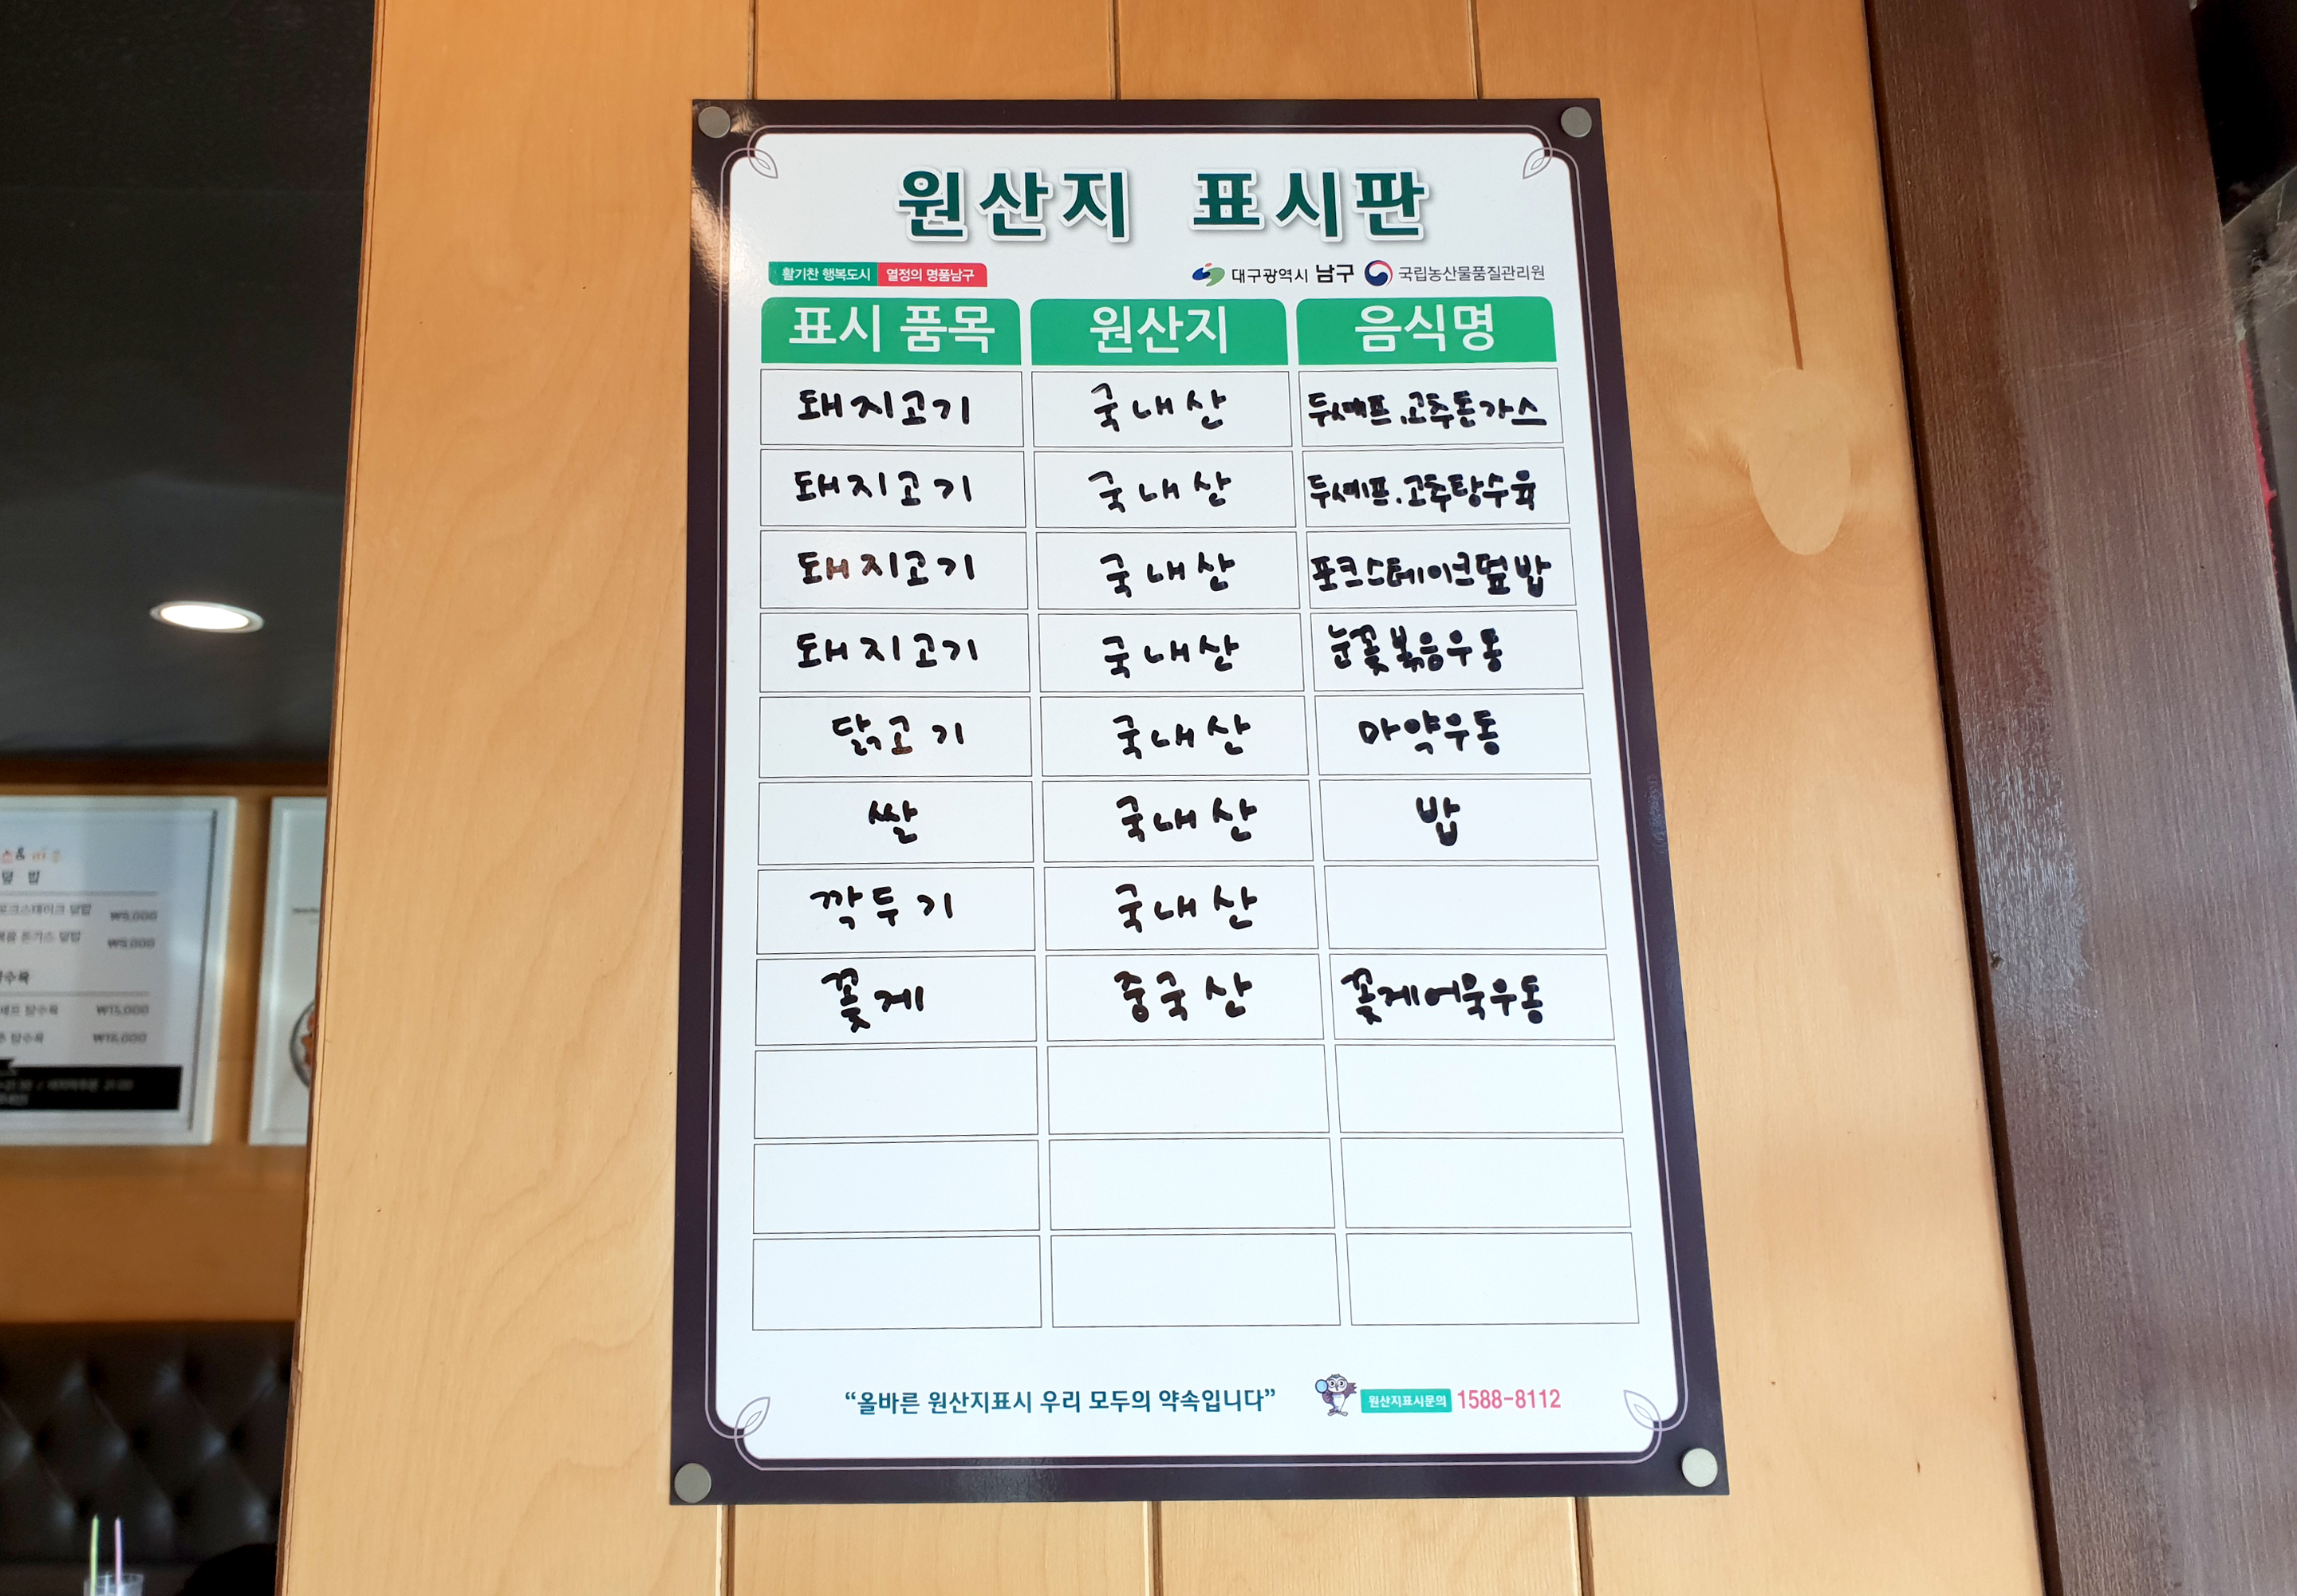 원산지 표시판
활기찬 행복도시 열정의 명품남구 대구광역시 남구 국립농산물품질관리원
표시 품목 원산지 음식명
돼지고기 국내산 두셰프.고추돈가스
돼지고기 국내산 두셰프.고추탕수육
돼지고기 국내산 포크스테이크덮밥
돼지고기 국내산 눈꽃볶음우동
닭고기 국내산 마약우동
쌀 국내산 밥
깍두기 국내산
꽃게 중국산 꽃게어묵우동
“올바른 원산지표시 우리 모두의 약속입니다” 원산지표시문의 1588-8112
덮 밥
포크스테이크 덮밥 ₩9,000
돈가스 덮밥 ₩9,000
탕수육 ₩15,000
탕수육 ₩16,000